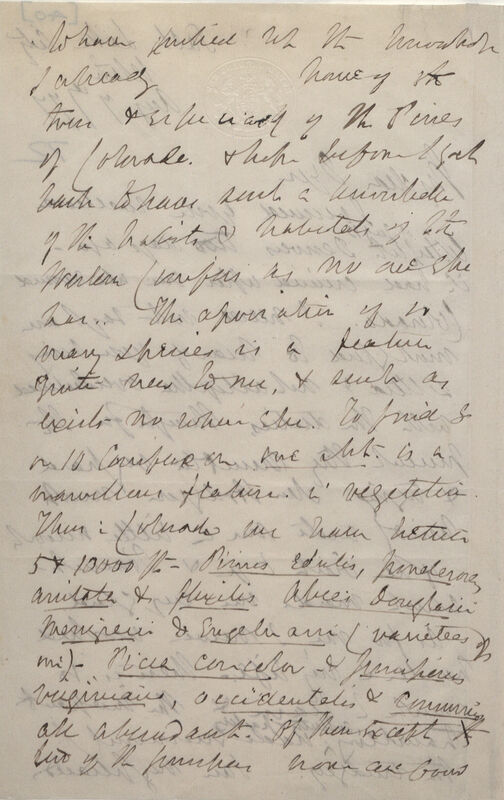 I have
I already have of the
trees & especially of the Pines
of Colorado. & hope before I get
back to have such a knowledge
of the habits & habitats of the
Western Conifers as no one else
has. The association of so
many species is a feature
quite new to me, & such as
exists no where else. To find 8
or 10 Conifers on one Mt. is a
marvellous feature in vegetation.
Thus in Colorado we have between
5 & 10000 ft - Pinus Edulis, ponderosa,
aristata & flexilis Abies Douglasii
Menziesii & Engelmani (varieties of
one) - Picea concolor & Juniperus
virginiana, occidentalis & communis
all abundant. Of these except
two of the junipers none are